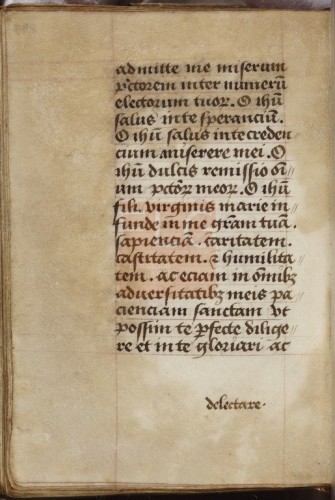 admitte me miserum
p̄ctorem inter numerū
electorum tuoꝝ. O ihū
salus in te sperancíū.
O ihū salus in te creden//
cium miserere mei. O
ihū dulcis remissio oı̄//
um p̄ctoꝝ meoꝝ. O ihū
fili virginis marie in//
funde in me grām tuā.
sapienciā. caritatem.
castitatem. ⁊ humilita//
tem. ac eciam in oı̄nibꝫ
aduersitatibꝫ meis pa//
cienciam sanctam vt
possim te ꝑfecte dilige//
re et in te gloriari ac
delectare.